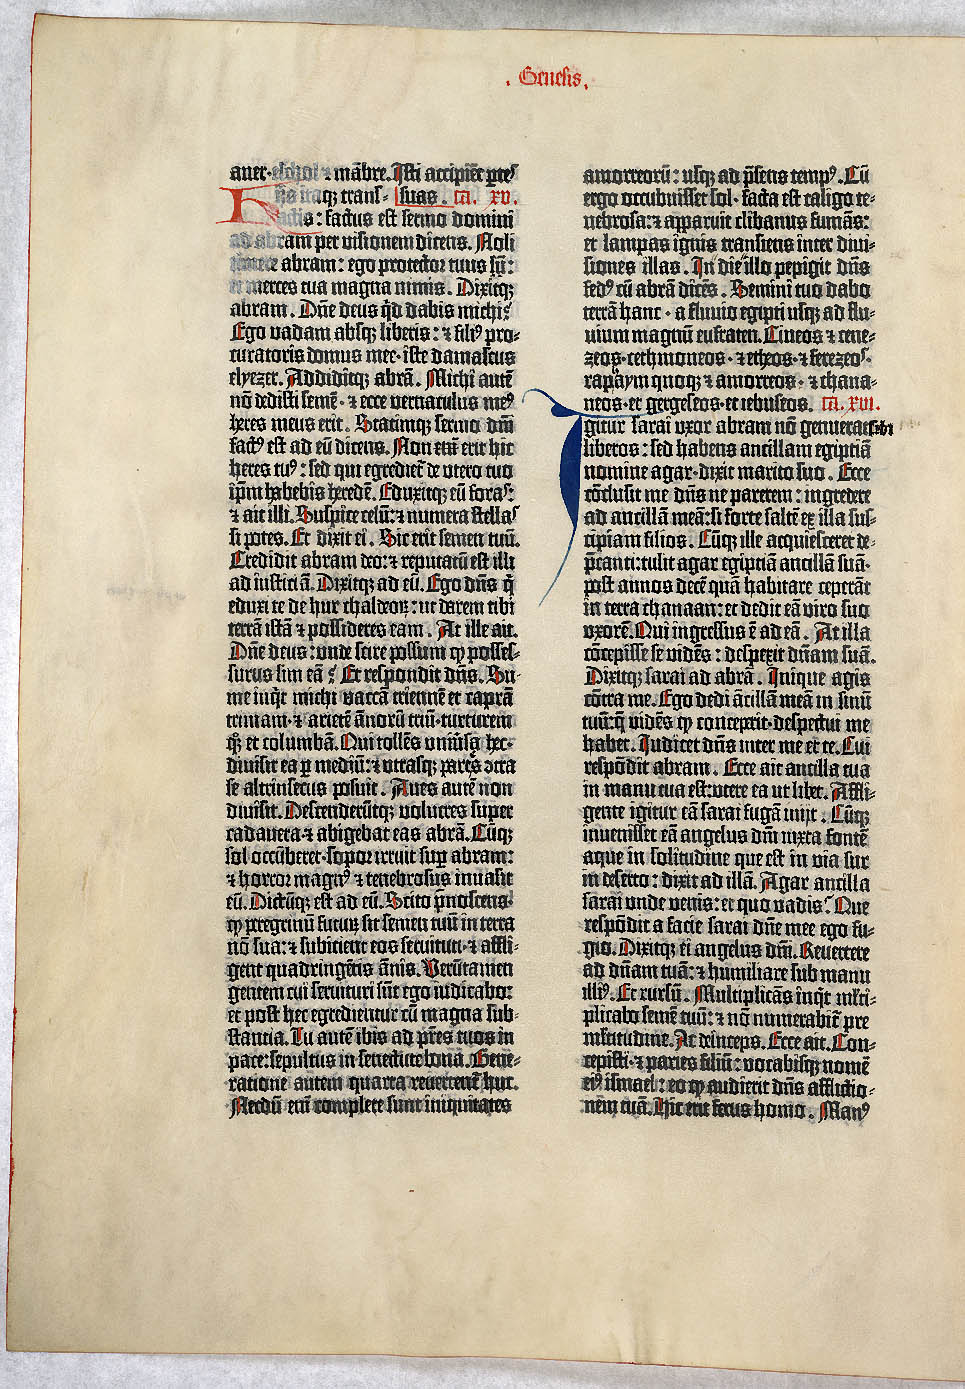 . Genesis .
aner · eschol ⁊ mābre. Isti accipiēt ꝑtes
His itaqꝫ trans- suas . ca. xv.
actis : factus est sermo domini
ad abram per visionem dicens. Noli
timere abram : ego protector tuus sū :
et merces tua magna nimis. Dixitqꝫ
abram. Dn̄e deus qͥd dabis michi?
Ego vadam absqꝫ liberis : ⁊ filiꝰ pro-
curatoris domus mee · iste damascus
elyezer. Addiditqꝫ abrā. Michi autē
nō dedisti semē · ⁊ ecce vernaculus meꝰ
heres meus erit. Statimqꝫ sermo dn̄i
factꝰ est ad eū dicens. Non erit hic
heres tuꝰ : sed qui egrediet̄ de utero tuo
ip̄m habebis heredē. Eduxitqꝫ eū foras :
⁊ ait illi. Suspice celū : ⁊ numera stellas
si potes. Et dixit ei. Sic erit semen tuū.
Credidit abram deo : ⁊ reputatū est illi
ad iusticiā. Dixitqꝫ ad eū. Ego dn̄s qͥ
eduxi te de hur chaldeoꝝ : ut darem tibi
terrā istā ⁊ possideres eam. At ille ait.
Dn̄e deus : unde scire possum ꝙ posses-
surus sim eā? Et respondit dn̄s. Su-
me inqͥt michi vaccā triennē et capram
trimam · ⁊ arietē annorū triū · turturem
qꝫ et columbā. Qui tollēs universa hec ·
divisit ea ꝑ mediū : ⁊ utrasqꝫ partes ↄtra
se altrinsecus posuit. Aves autē non
divisit. Descenderūtqꝫ volucres super
cadavera · ⁊ abigebat eas abrā. Cūqꝫ
sol occūberet · sopor irruit suꝑ abram :
⁊ horror magnꝰ ⁊ tenebrosus invasit
eū. Dictūqꝫ est ad eū. Scito p̄noscens ·
ꝙ peregrinū futuꝝ sit semen tuū in terra
nō sua : ⁊ subicient eos servituti · ⁊ affli-
gent quadringētis annis. Verūtamen
gentem cui servituri sūt ego iudicabo :
et post hec egredientur cū magna sub-
stantia. Tu autē ibis ad pr̄es tuos in
pace : sepultus in senectute bona. Gene-
ratione autem quarta revertent̄ huc.
Necdū enī complete sunt iniquitates
amorreorū : usqꝫ ad p̄sens tempꝰ. Cū
ergo occubuisset sol · facta est caligo te-
nebrosa : ⁊ apparuit clibanus fumās :
et lampas ignis transiens inter divi-
siones illas. In die illo pepigit dn̄s
fedꝰ cū abrā dicēs. Semini tuo dabo
terrā hanc · a fluvio egipti usqꝫ ad flu-
vium magnū eufraten. Cineos ⁊ cene-
zeos · cethmoneos · ⁊ etheos · ⁊ ferezeos ·
raphaym quoqꝫ ⁊ amorreos · ⁊ chana-
neos · et gergeseos · et iebuseos. ca. xvi.
Igitur sarai uxor abram nō genuerat sibi
liberos : sed habens ancillam egiptiā
nomine agar · dixit marito suo. Ecce
cōclusit me dn̄s ne parerem : ingredere
ad ancillā meā : si forte saltē ex illa sus-
cipiam filios. Cūqꝫ ille acquiesceret de-
p̄canti : tulit agar egiptiā ancillā suā ·
post annos decē quā habitare ceperāt
in terra chanaan : et dedit eā viro suo
uxorē. Qui ingressus ē ad eā. At illa
cōcepisse se vidēs : despexit dn̄am suā.
Dixitqꝫ sarai ad abrā. Inique agis
cōtra me. Ego dedi ancillā meā in sinū
tuū : q̄ vidēs ꝙ conceperit · despectui me
habet. Iudicet dn̄s inter me et te. Cui
respōdit abram. Ecce ait ancilla tua
in manu tua est : utere ea ut libet. Affli-
gente igitur eā sarai fugā iniit. Cūqꝫ
invenisset eā angelus dn̄i iuxta fontē
aque in solitudine que est in via sur
in deserto : dixit ad illā. Agar ancilla
sarai unde venis : et quo vadis? Que
respōdit a facie sarai dn̄e mee ego fu-
gio. Dixitqꝫ ei angelus dn̄i. Revertere
ad dn̄am tuā : ⁊ humiliare sub manu
illiꝰ. Et rursū. Multiplicās inqͥt mlti-
plicabo semē tuū : ⁊ nō numerabit̄ pre
mltitudine. Ac deinceps. Ecce ait. Con-
cepisti · ⁊ paries filiū : vocabisqꝫ nomē
eiꝰ ismael : eo ꝙ audierit dn̄s afflictio-
nem tuā. Hic erit ferus homo. Manꝰ